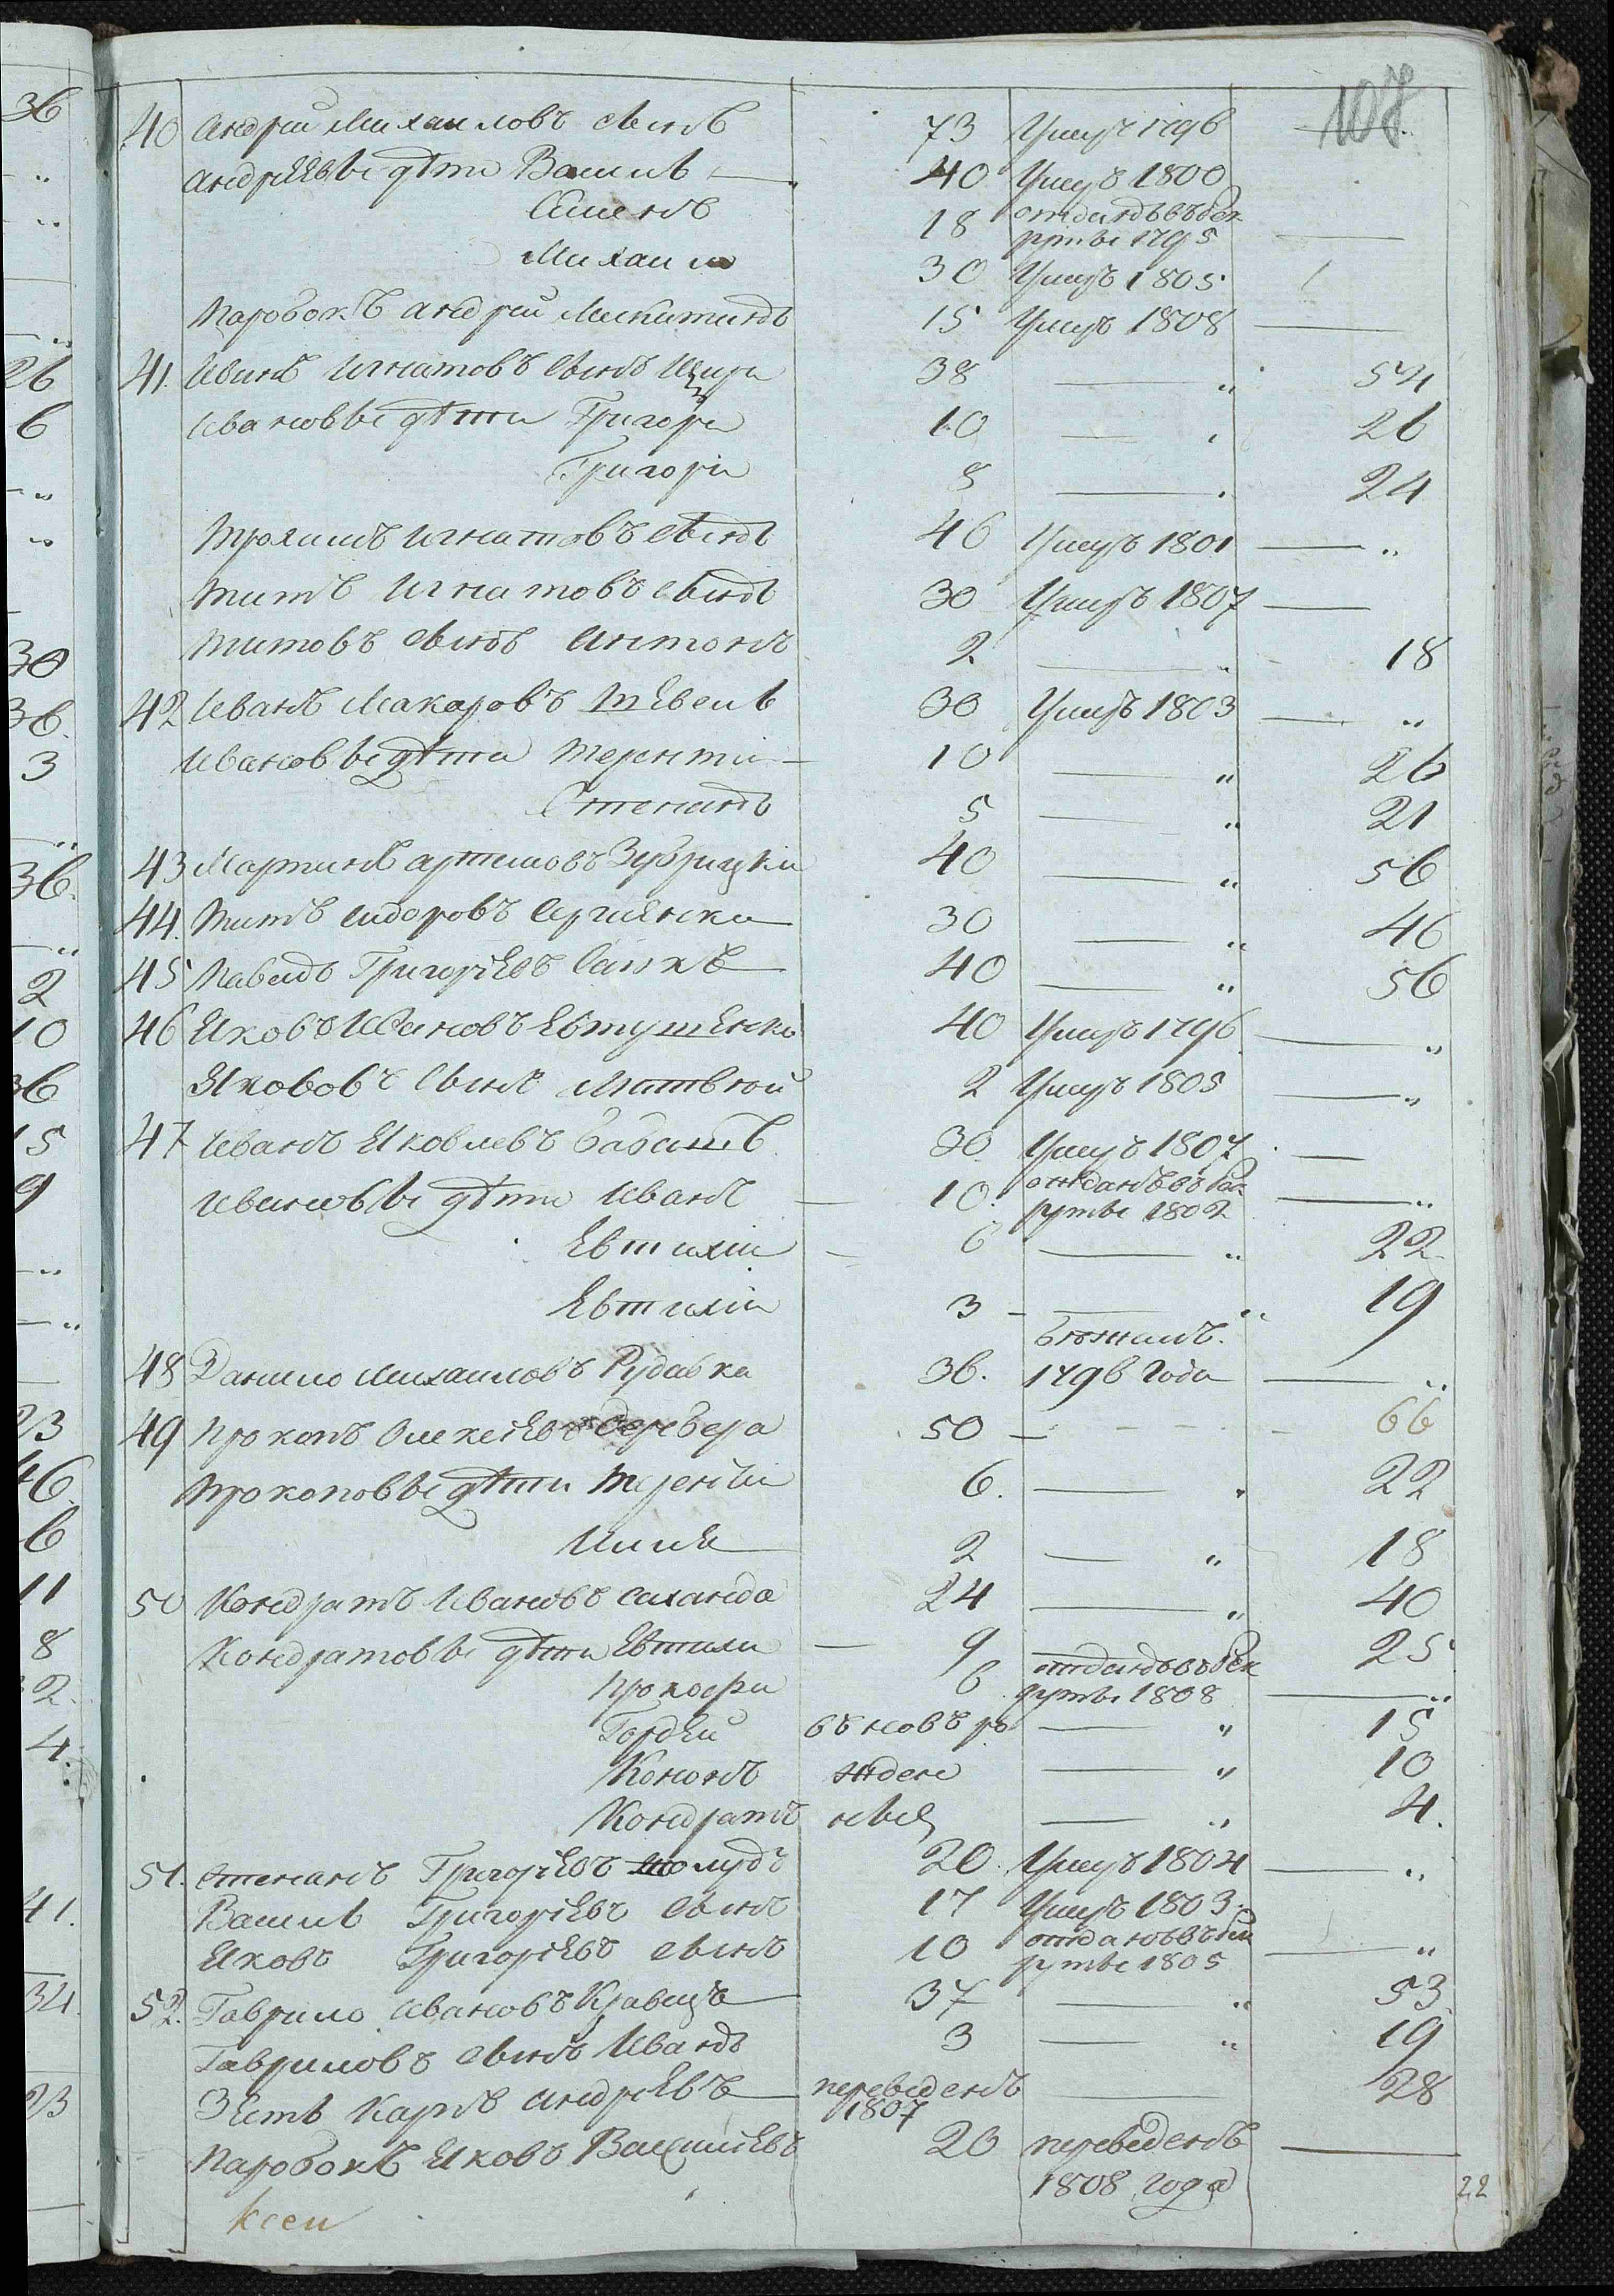 107.
40 Андрей Михаиловъ сынъ 73 Умеръ 1796
Андрѣевы дѣти Василь 40 Умеръ 1800
Семенъ 18 отданъ въ рек
руты 1795
Михаило 30 Умеръ 1805
Паробокъ Андрей Микитинъ 15 Умеръ 1808
41. Иванъ Игнатовъ сынъ 38 — 54
Ивановы дѣти Григори 10 — 26
Григори 8 — 24
Трохимъ Игнатовъ сынъ 46 Умеръ 1801 —
Титъ Игнатовъ сынъ 30 Умеръ 1807 —
Титовъ сынъ Антонъ 2 — 18
42 Иванъ Макаровъ Шевель 30 Умеръ 1803 —
Ивановы дѣти Терентии 10 — 26
Степанъ 5 — 21
43 Мартинъ Артемовъ Зубрицкии 40 — 56
44. Титъ Сидоровъ Сергиенко 30 — 46
45 Григориевъ 40 — 56
46 Яковъ Ивановъ Евтушенко 40 Умеръ 1796 —
Яковъ сынъ Матвѣй 2 Умеръ 1805 —
47 Иванъ Яковлевъ Бабашъ 30 Умеръ 1807 —
Ивановы дѣти Иванъ 10. отданъ въ рек
руты 1802 —
Евтихии 6 — 22
Евтихии 3 — 19
бѣжалъ.
48 Данило Михаиловъ Рудавка 36. 1796 Года —
49 Прокопъ Олексіевъ 50 — 66
Прокоповы дѣти Терентии 6. — 22
Илия 2 — 18
50 Кондратъ Ивановъ Саханда 24 — 40
Кондратовы дѣти Евтихи 9 — 25
Прокофи 6 отданъ въ рек
руты 1808 —
Гордѣй въ новъ ро — 15
Кононъ жден — 10
Кондратъ ныя — 4.
51. Степанъ Григориевъ 20. Умеръ 1804 —
Василь Григориевъ сынъ 17 Умеръ 1803.
Яковъ Григориевъ сынъ 10 отданъ въ рек
руты 1805 —
52. Гаврило Ивановъ Кравецъ 37 — 53
Гавриловъ сынъ Иванъ 3 — 19
Зять Карпъ Андрѣевъ переведенъ — 28
1807
Паробокъ Яковъ Василиевъ 20 переведенъ —
1808 года
22